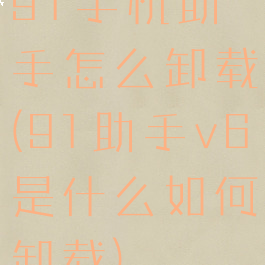 91手机助
手怎么卸载
(91助手v6
是什么如何
卸载)